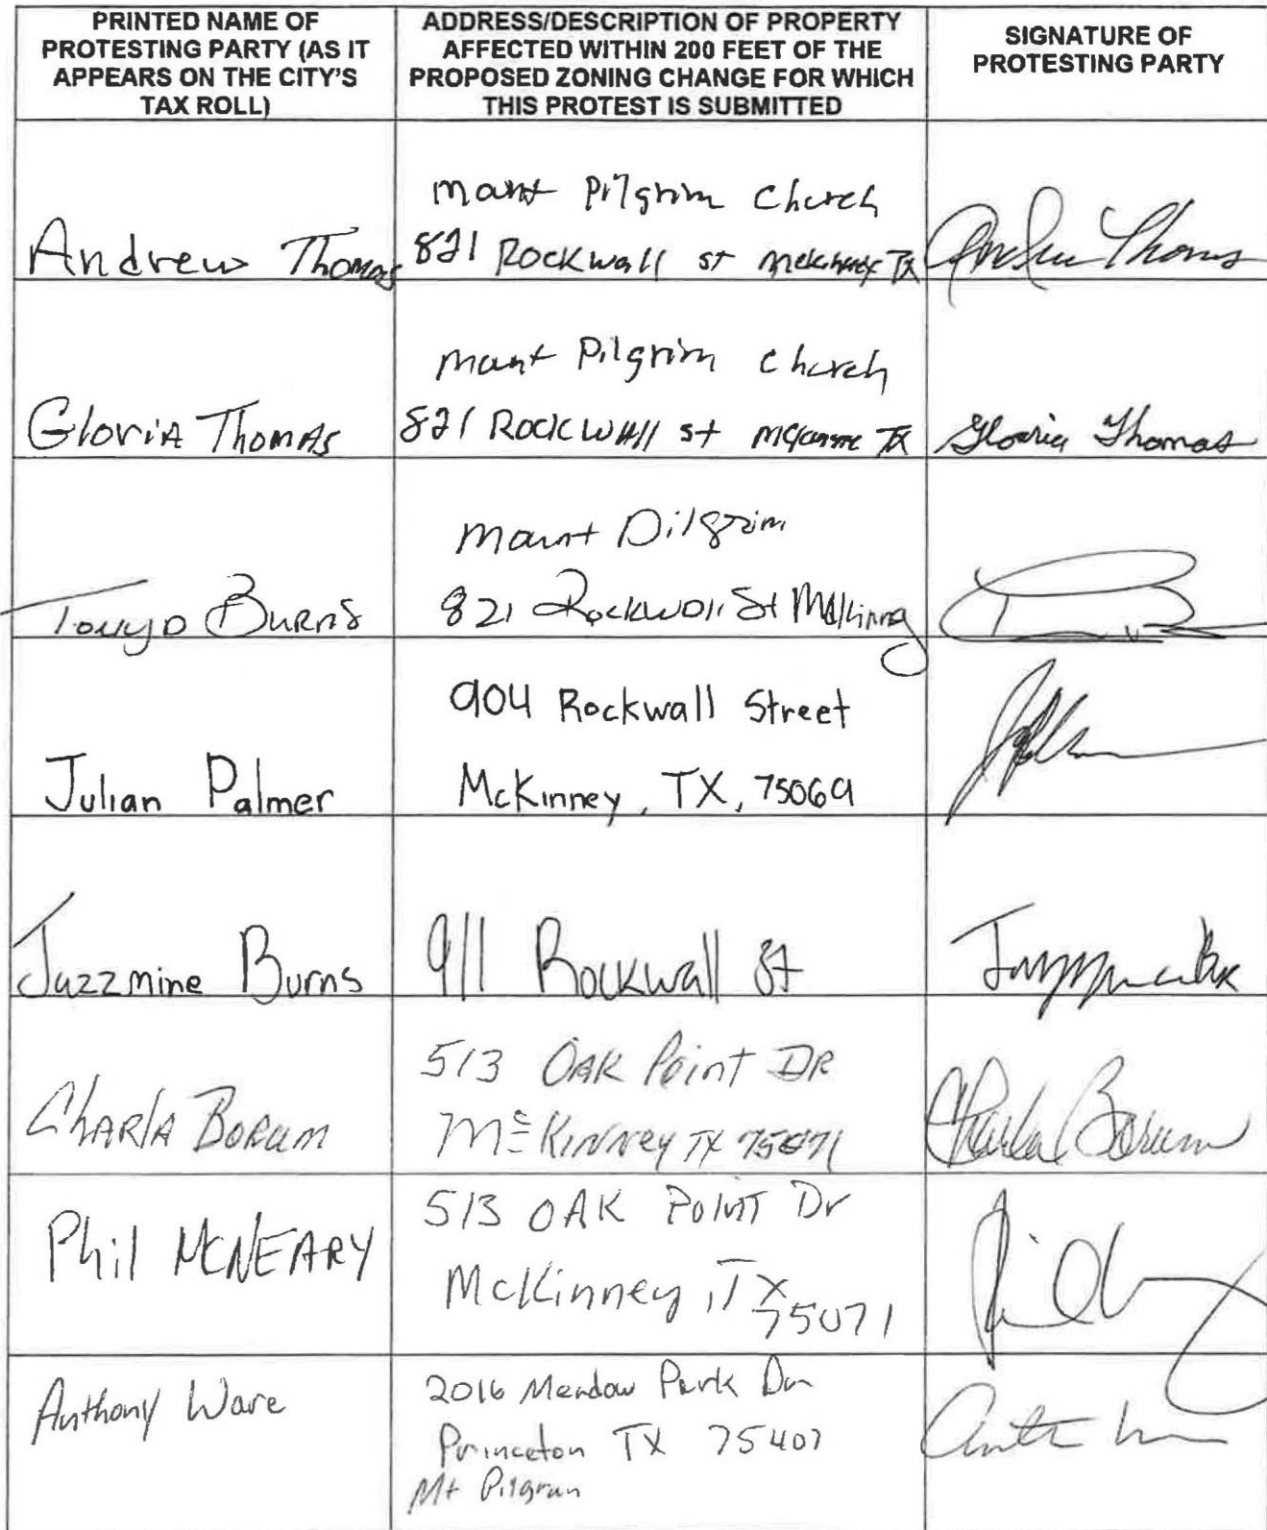 PRINTED NAME OF
PROTESTING PARTY (AS IT
APPEARS ON THE CITY'S
TAX ROLL)
ADDRESS/DESCRIPTION OF PROPERTY
AFFECTED WITHIN 200 FEET OF THE
PROPOSED ZONING CHANGE FOR WHICH
THIS PROTEST IS SUBMITTED
SIGNATURE OF
PROTESTING PARTY
Andrew Thomas
Mount Pilgrim Church
821 Rockwall st TX
Andrew Thomas
Gloria Thomas
Mount Pilgrim Church
821 Rockwall st TX
Gloria Thomas
Burns
Mount Pilgrim
821 Rockwall St McKinney
Julian Palmer
904 Rockwall Street
McKinney, TX, 75069
Jazzmine Burns
911 Rockwall St
Charla Borum
513 Oak Point DR
McKinney TX 75071
Charla Borum
Phil McNEARY
513 OAK Point Dr
McKinney, TX
75071
Anthony Ware
2016 Meadow Park Dr
Princeton TX 75407
Mt Pilgrim